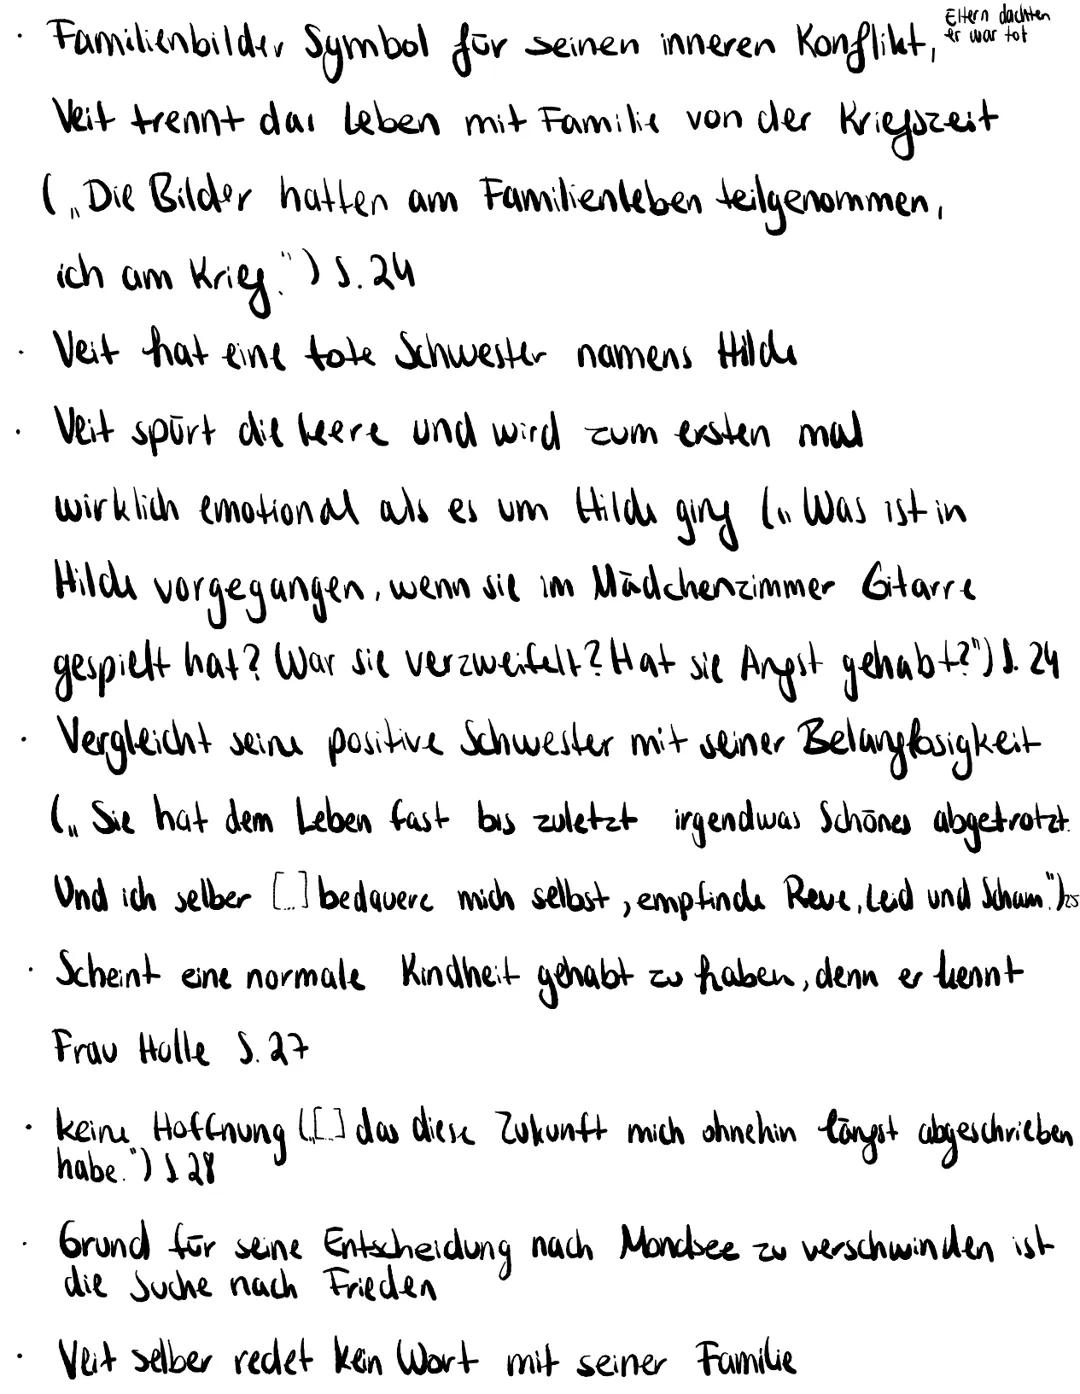 · Familienbilder Symbol für seinen inneren Konflikt, Eltern dachten er war tot
Veit trennt das Leben mit Familie von der Kriegszeit
(„Die Bilder hatten am Familienleben teilgenommen,
ich am Krieg.") S. 24
· Veit hat eine tote Schwester namens Hilde
· Veit spürt die Leere und wird zum ersten mal
wirklich emotional als es um Hilde ging („Was ist in
Hilde vorgegangen, wenn sie im Mädchenzimmer Gitarre
gespielt hat? War sie verzweifelt? Hat sie Angst gehabt?") S. 24
· Vergleicht seine positive Schwester mit seiner Belanglosigkeit
(„Sie hat dem Leben fast bis zuletzt irgendwas Schönes abgetrotzt.
Und ich selber [...] bedauere mich selbst, empfinde Reue, Leid und Scham.") 25
· Scheint eine normale Kindheit gehabt zu haben, denn er kennt
Frau Holle S. 27
· keine Hoffnung („[...] das diese Zukunft mich ohnehin längst abgeschrieben
habe.") S 28
· Grund für seine Entscheidung nach Mondsee zu verschwinden ist
die Suche nach Frieden
· Veit selber redet kein Wort mit seiner Familie